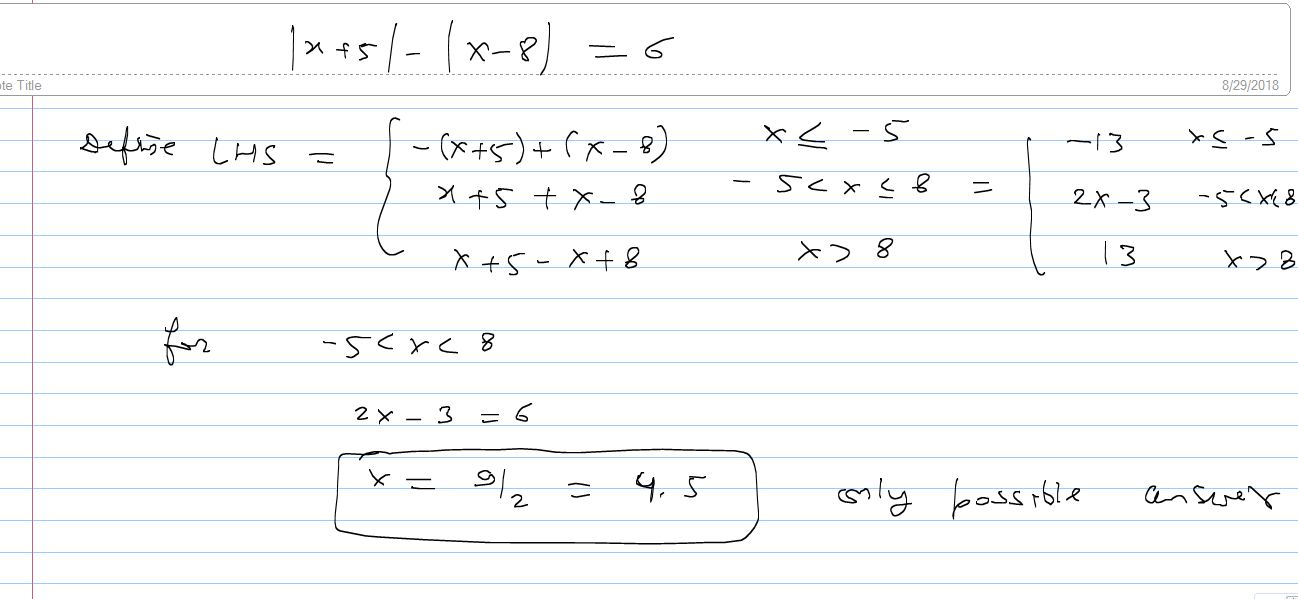 |x+5| - |x-8| = 6
te Title
8/29/2018
Define LHS = { -(x+5)+(x-8) x ≤ -5 = { -13 x ≤ -5
x+5 + x-8 -5 < x ≤ 8 2x-3 -5<x<8
x+5-x+8 x > 8 13 x > 8
for -5 < x < 8
2x - 3 = 6
x = 9/2 = 4.5 only possible answer